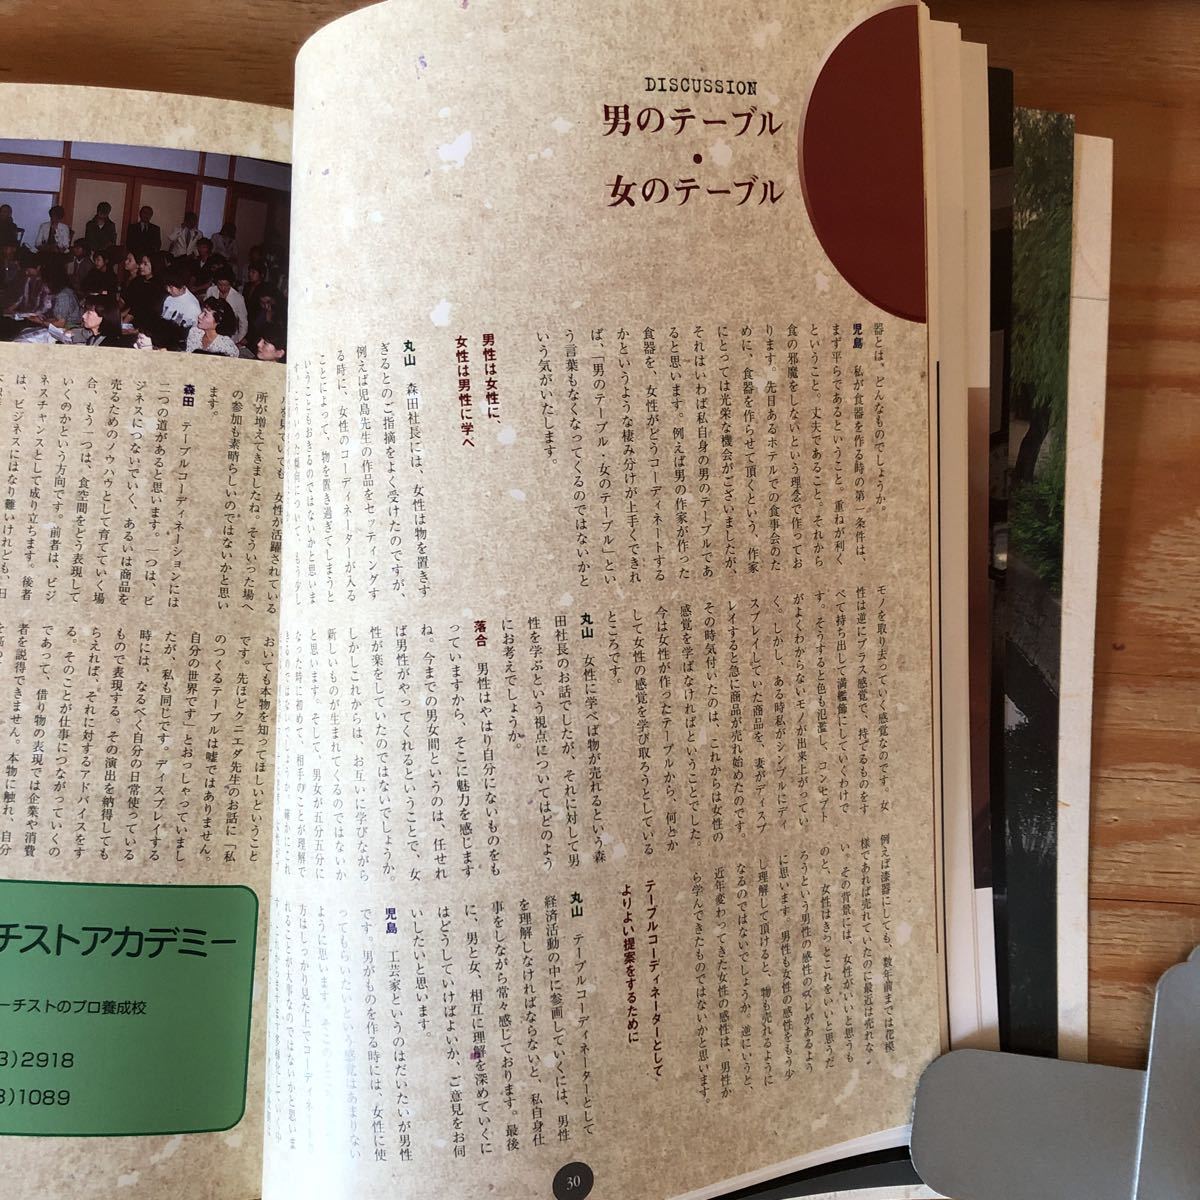 DISCUSSION
男のテーブル
・
女のテーブル
器とは、どんなものでしょうか。
児島　私が食器を作る時の第一条件は、
まず平らであるということ。重ねが利く
ということ。丈夫であること。それから
食の邪魔をしないという理念で作ってお
ります。先日あるホテルでの食事会のた
めに、食器を作らせて頂くという、作家
にとっては光栄な機会がございましたが、
それはいわば私自身の男のテーブルであ
ると思います。例えば男の作家が作った
食器を、女性がどうコーディネートする
かというような棲み分けが上手くできれ
ば、「男のテーブル・女のテーブル」とい
う言葉もなくなってくるのではないかと
いう気がいたします。
男性は女性に、
女性は男性に学べ
丸山　森田社長には、女性は物を置きす
ぎるとのご指摘をよく受けたのですが、
例えば児島先生の作品をセッティングす
る時に、女性のコーディネーターが入る
ことによって、物を置き過ぎてしまうと
いうこともおきるのではないかと思いま
モノを取り去っていく感覚なのです。女
性は逆にプラス感覚で、持てるものをす
べて持ち出して満艦飾にしていくわけで
す。そうすると色も氾濫し、コンセプト
がよくわからないモノが出来上がってい
く。しかし、ある時私がシンプルにディ
スプレイしていた商品を、妻がディスプ
レイすると急に商品が売れ始めたのです。
その時気付いたのは、これからは女性の
感覚を学ばなければということでした。
今は女性が作ったテーブルから、何とか
して女性の感覚を学び取ろうとしている
ところです。
丸山　女性に学べば物が売れるという森
田社長のお話でしたが、それに対して男
性を学ぶという視点についてはどのよう
にお考えでしょうか。
落合　男性はやはり自分にないものをも
っていますから、そこに魅力を感じます
ね。今までの男女間というのは、任せれ
ば男性がやってくれるということで、女
性が楽をしていたのではないでしょうか。
しかしこれからは、お互いに学びながら
新しいものが生まれてくるのではないか
と思います。そして、男女が五分五分に
なった時に初めて、相手のことが理解で
例えば漆器にしても、数年前までは花模
様であれば売れていたのに最近は売れな
い。その背景には、女性がいいと思うも
のと、女性はきっとこれをいいと思うだ
ろうという男性の感性のズレがあるよう
に思います。男性も女性の感性をもう少
し理解して頂けると、物も売れるように
なるのではないでしょうか。逆にいうと、
近年変わってきた女性の感性は、男性か
ら学んできたものではないかと思います。
テーブルコーディネーターとして、
よりよい提案をするために
丸山　テーブルコーディネーターとして
経済活動の中に参画していくには、男性
を理解しなければならないと、私自身仕
事をしながら常々感じております。最後
に、男と女、相互に理解を深めていくに
はどうしていけばよいか、ご意見をお伺
いしたいと思います。
児島　工芸家というのはだいたいが男性
です。男がものを作る時には、女性に使
ってもらいたいという感覚はあまりない
ように思います。
30
所が増えてきましたね。そういった場へ
の参加も素晴らしいのではないかと思い
ます。
森田　テーブルコーディネーションには
二つの道があると思います。一つは、ビ
ジネスにつないでいく、あるいは商品を
売るためのノウハウとして育てていく場
合、もう一つは、食空間をどう表現して
いくのかという方向です。前者は、ビジ
ネスチャンスとして成り立ちます。後者
は、ビジネスにはなり難いけれども、日
おいても本物を知ってほしいということ
です。先ほどクニエダ先生のお話に「私
のつくるテーブルは嘘ではありません。
自分の世界です」とおっしゃっていまし
たが、私も同じです。ディスプレイする
時には、なるべく自分の日常使っている
もので表現する。その演出を納得しても
らえれば、それに対するアドバイスをす
る。そのことが仕事につながっていくの
であって、借り物の表現では企業や消費
者を説得できません。本物に触れ、自分
チストアカデミー
ーチストのプロ養成校
3)2918
3)1089